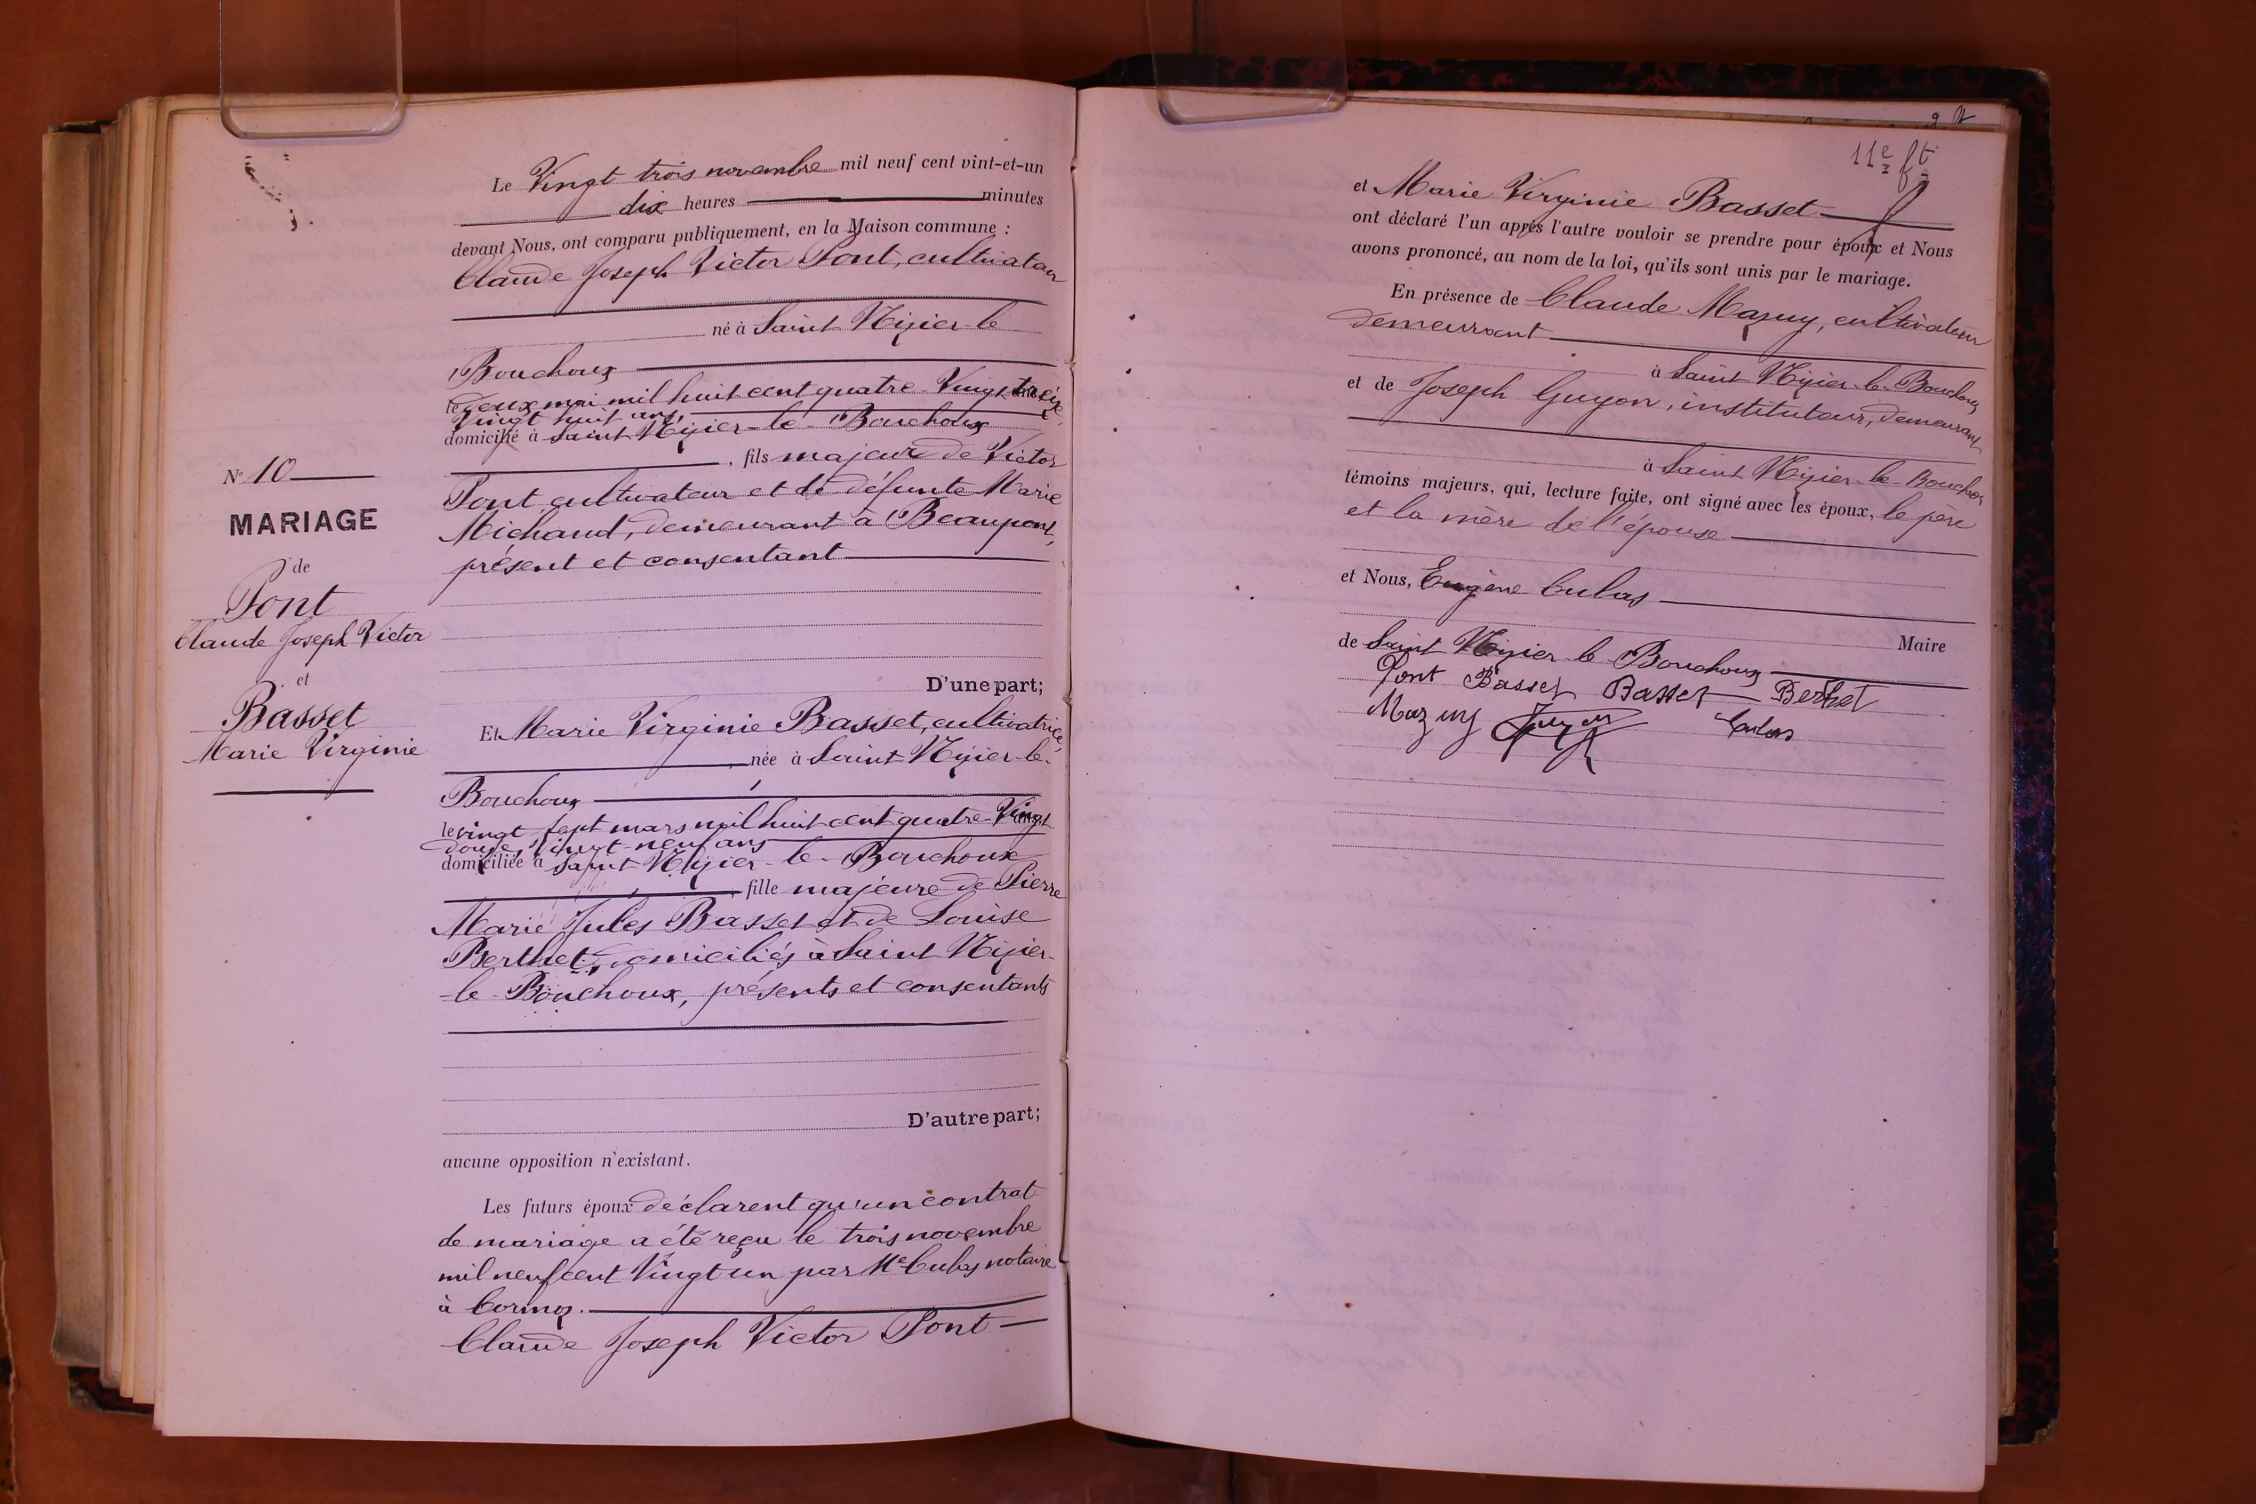 N° 10
MARIAGE
de
Pont
Claude Joseph Victor
et
Basset
Marie Virginie
Le Vingt trois novembre mil neuf cent vint-et-un
dix heures minutes
devant Nous, ont comparu publiquement, en la Maison commune :
Claude Joseph Victor Pont, cultivateur
né à Saint Nizier-le
Bouchoux
le deux mai mil huit cent quatre-Vingt treize
Vingt huit ans,
domicilié à Saint Nizier-le-Bouchoux
, fils majeur de Victor
Pont cultivateur et de défunte Marie
Michaud, demeurant à Beaupont,
présent et consentant
D'une part;
Et Marie Virginie Basset, cultivatrice,
née à Saint Nizier-le-
Bouchoux
le vingt sept mars mil huit cent quatre-Vingt
douze, Vingt-neuf ans
domiciliée à Saint Nizier-le-Bouchoux
, fille majeure de Pierre
Marie Jules Basset et de Louise
Berthet, domiciliés à Saint Nizier-
-le-Bouchoux, présents et consentants
D'autre part;
aucune opposition n'existant.
Les futurs époux déclarent qu'un contrat
de mariage a été reçu le trois novembre
mil neuf cent Vingt un par Me Culas notaire
à Cormoz.
Claude Joseph Victor Pont
11e ft
et Marie Virginie Basset
ont déclaré l'un après l'autre vouloir se prendre pour époux et Nous
avons prononcé, au nom de la loi, qu'ils sont unis par le mariage.
En présence de Claude Mazuy, cultivateur
demeurant
à Saint Nizier-le-Bouchoux
et de Joseph Guyon, instituteur, demeurant
à Saint Nizier-le-Bouchoux
témoins majeurs, qui, lecture faite, ont signé avec les époux, le père
et la mère de l'épouse
et Nous, Eugène Culas
Maire
de Saint Nizier-le-Bouchoux
Pont Basset Basset Berthet
Mazuy Guyon Culas